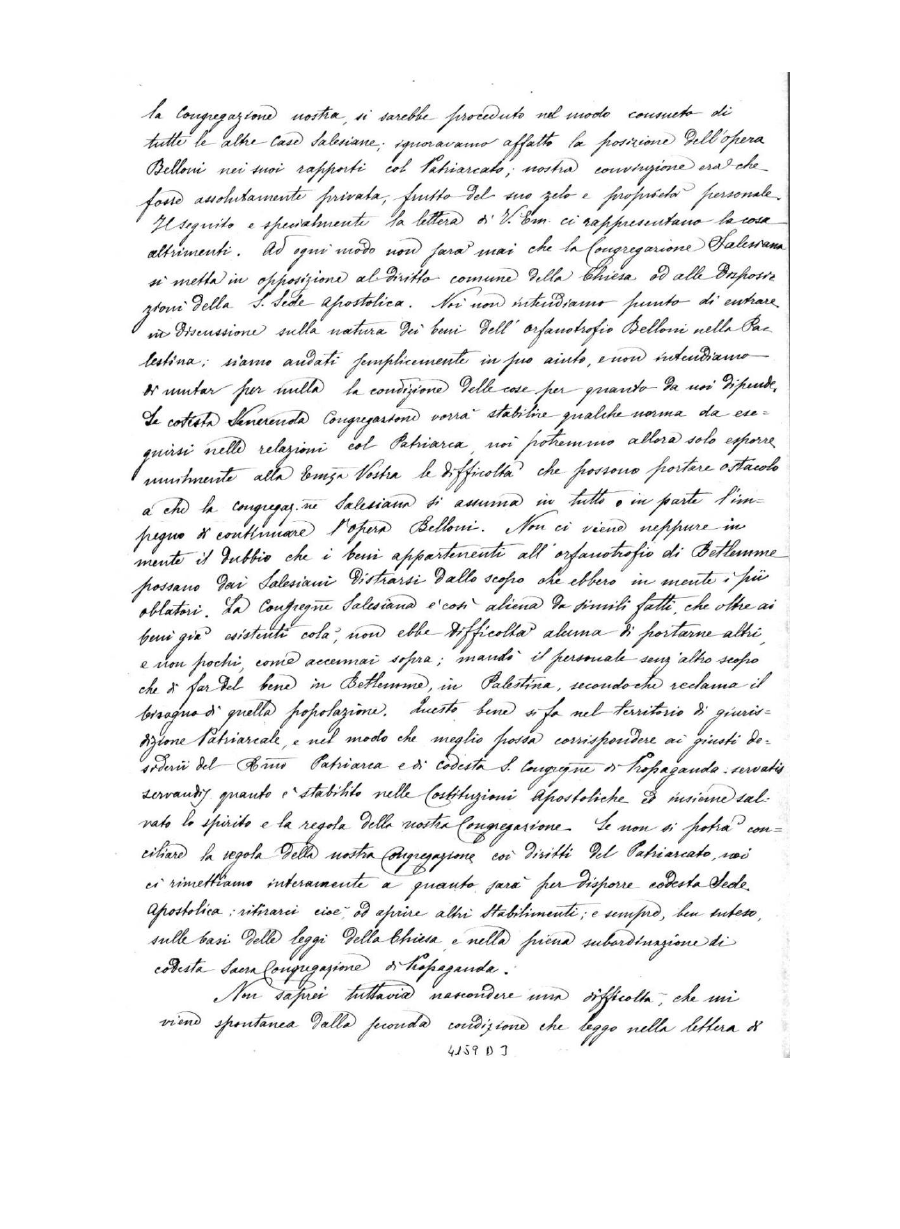 la Congregazione nostra, si sarebbe proceduto nel modo consueto di
tutte le altre Case Salesiane; ignoravamo affatto la posizione dell'opera
Belloni nei suoi rapporti col Patriarcato; nostra convinzione era che
fosse assolutamente privata, frutto del suo zelo e proprietà personale.
Il seguito e specialmente la lettera di V. Em. ci rappresentano la cosa
altrimenti. Ad ogni modo non sarà mai che la Congregazione Salesiana
si metta in opposizione al diritto comune della Chiesa od alle Disposi=
zioni della S. Sede Apostolica. Noi non intendiamo punto di entrare
in Discussione sulla natura dei beni dell'orfanotrofio Belloni nella Pa=
lestina; siamo andati semplicemente in suo aiuto, e non intendiamo
di mutar per nulla la condizione delle cose per quanto da noi dipende.
Se cotesta Veneranda Congregazione vorrà stabilire qualche norma da ese=
guirsi nelle relazioni col Patriarca, noi potremmo allora solo esporre
umilmente alla Emza Vostra le difficoltà che possono portare ostacolo
a che la congregaz.ne Salesiana si assuma in tutto o in parte l'im=
pegno di continuare l'opera Belloni. Non ci viene neppure in
mente il dubbio che i beni appartenenti all'orfanotrofio di Betlemme
possano dai Salesiani distrarsi dallo scopo che ebbero in mente i pii
oblatori. La Congregne Salesiana è così aliena da simili fatti, che oltre ai
beni già esistenti colà, non ebbe difficoltà alcuna di portarne altri,
e non pochi, come accennai sopra; mandò il personale senz'altro scopo
che di far del bene in Betlemme, in Palestina, secondo che reclama il
bisogno di quella popolazione. Questo bene si fa nel territorio di giuris=
dizione Patriarcale, e nel modo che meglio possa corrispondere ai giusti de=
siderii del Rmo Patriarca e di codesta S. Congregne di Propaganda - servatis
servandis quanto è stabilito nelle Costituzioni Apostoliche ed insieme sal=
vato lo spirito e la regola della nostra Congregazione. Se non si potrà con=
ciliare la regola della nostra Congregazione coi diritti del Patriarcato, noi
ci rimettiamo interamente a quanto sarà per disporre codesta Sede
Apostolica: ritirarci cioè, od aprire altri stabilimenti; e sempre, ben inteso,
sulle basi delle leggi della Chiesa e nella piena subordinazione di
codesta Sacra Congregazione di Propaganda.
Non saprei tuttavia nascondere una difficoltà, che mi
viene spontanea dalla seconda condizione che leggo nella lettera di
4159 D 3